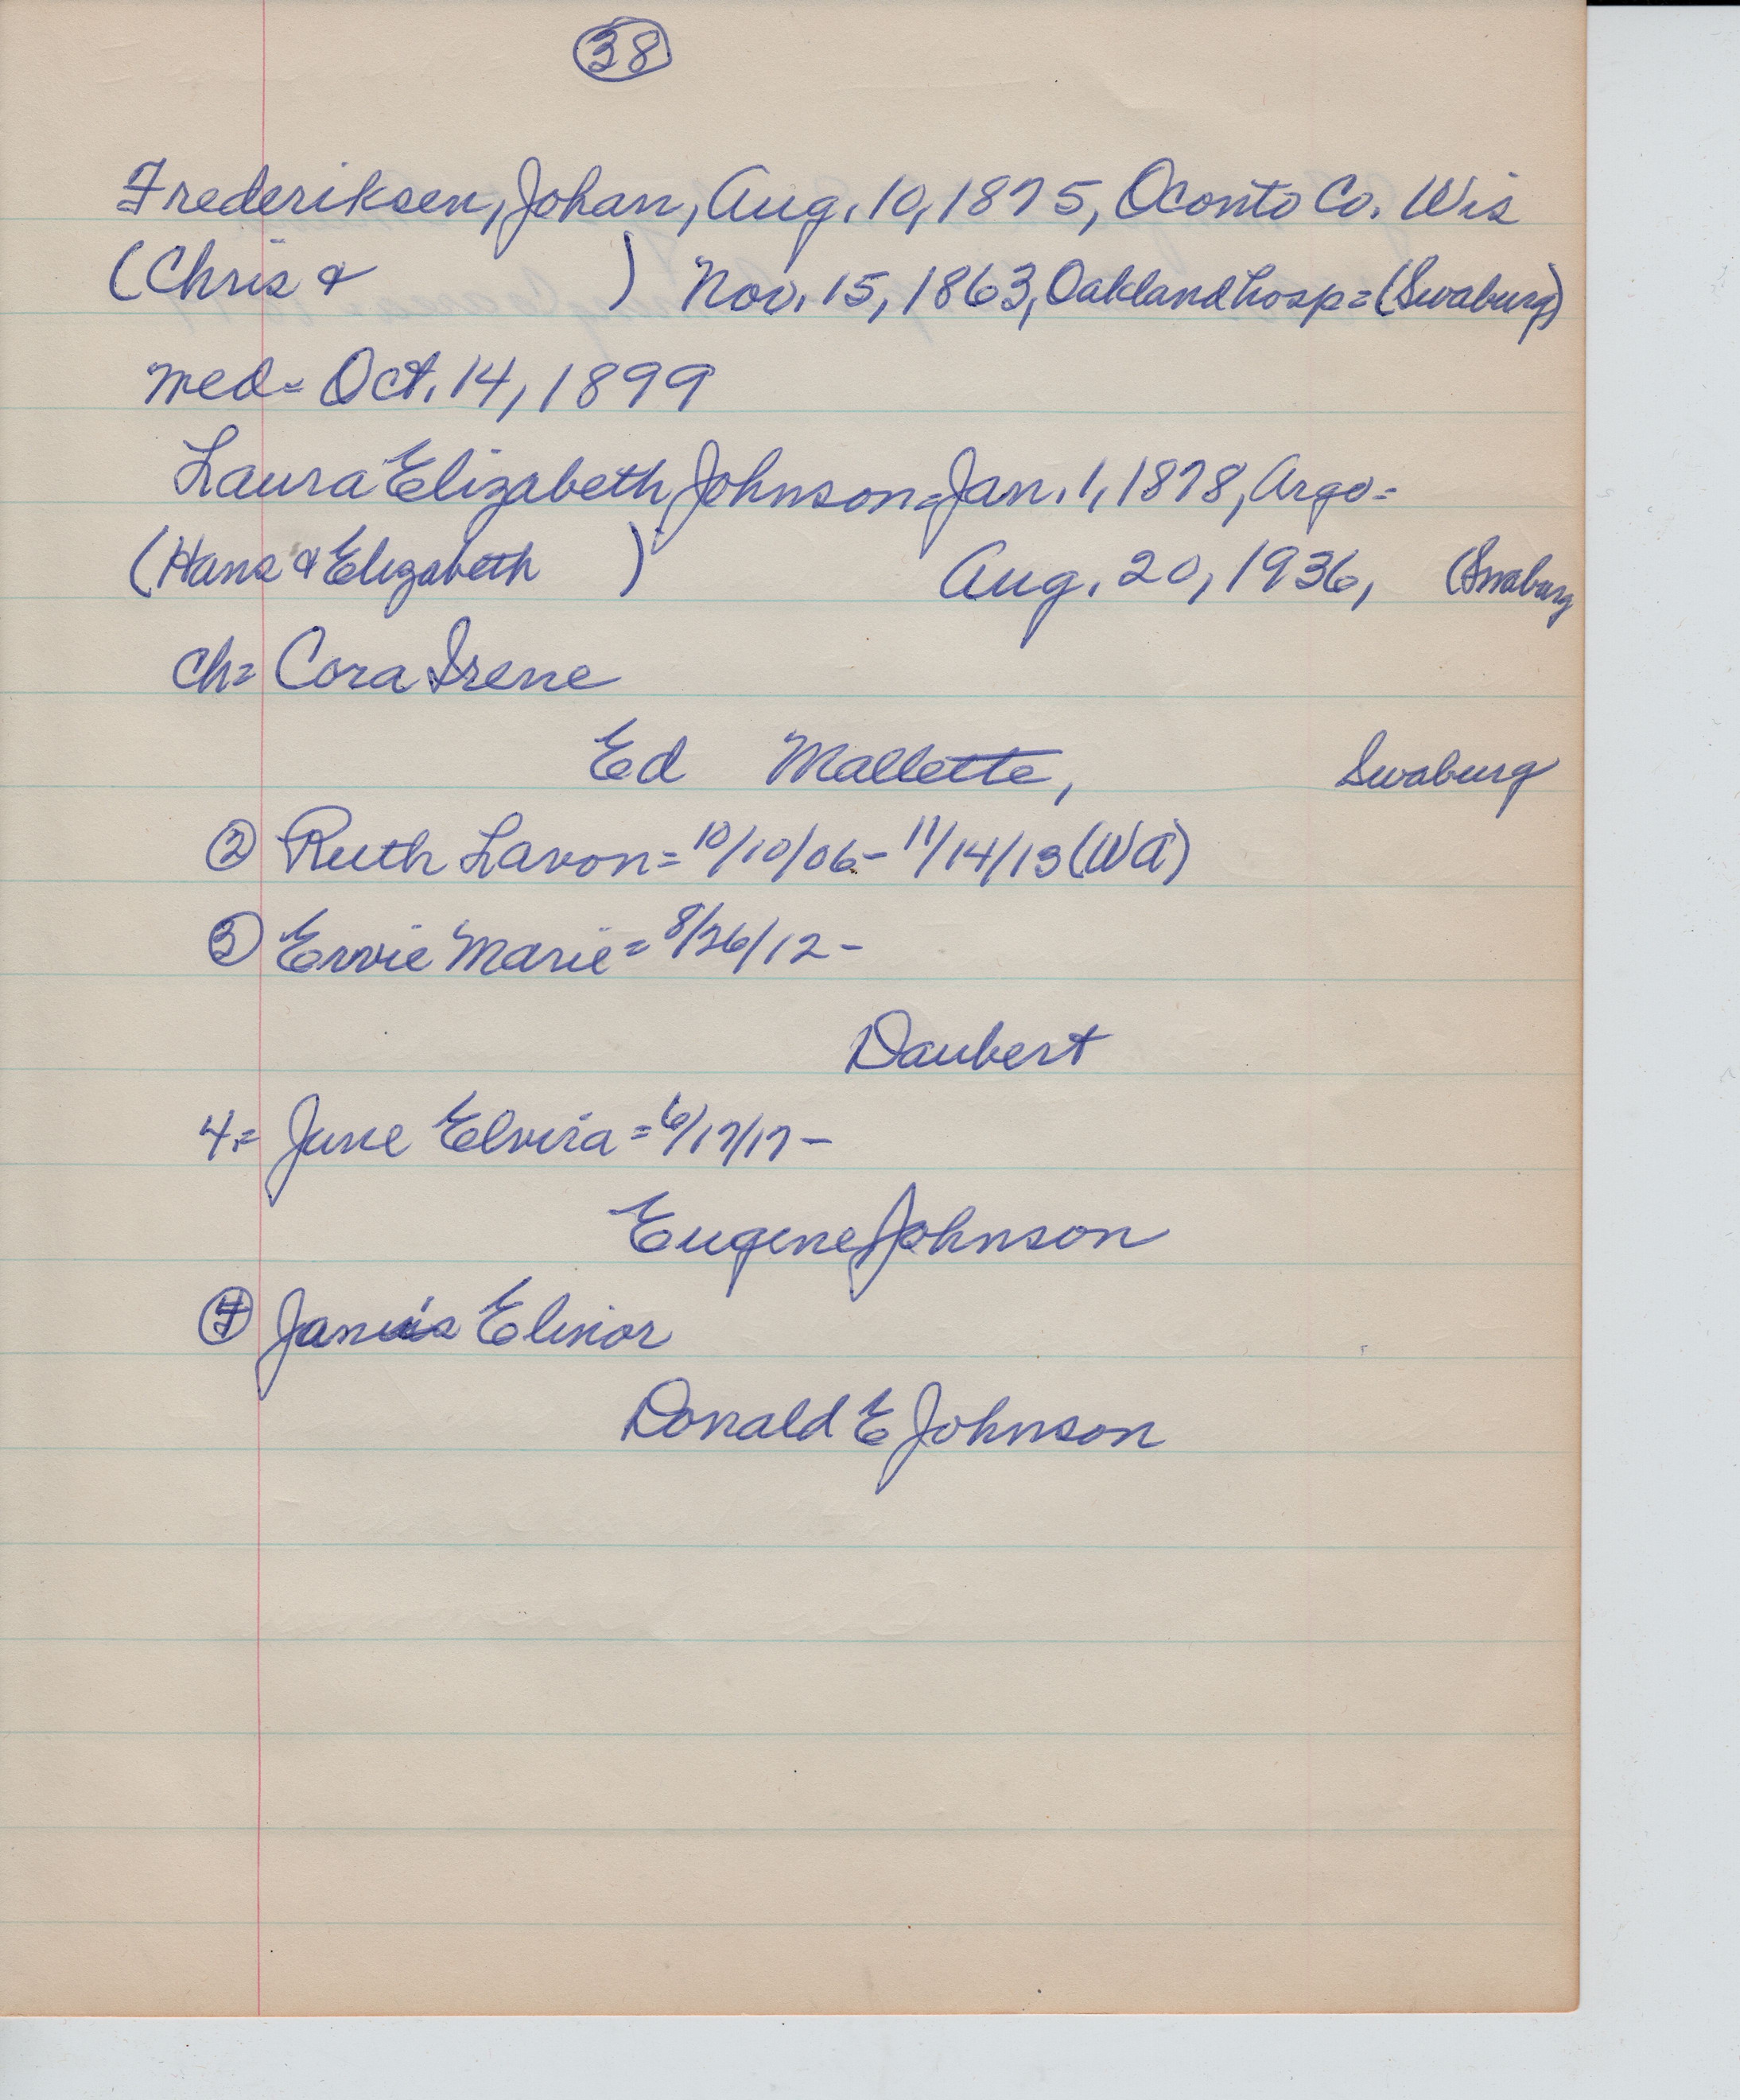 38
Frederiksen, Johan, Aug. 10, 1875, Oconto Co. Wis
(Chris & ) Nov. 15, 1863, Oakland hosp = (Swaburg)
med = Oct. 14, 1899
Laura Elizabeth Johnson = Jan. 1, 1878, Argo =
(Hans & Elizabeth ) Aug. 20, 1936, (Swaburg
ch = Cora Irene
Ed Mallette, Swaburg
② Ruth Lavon = 10/10/06 - 11/14/13 (WA)
③ Ervie Marie = 8/26/12 -
Daubert
4. = June Elvira = 6/17/17 -
Eugene Johnson
④ Janis Elinor
Donald E Johnson